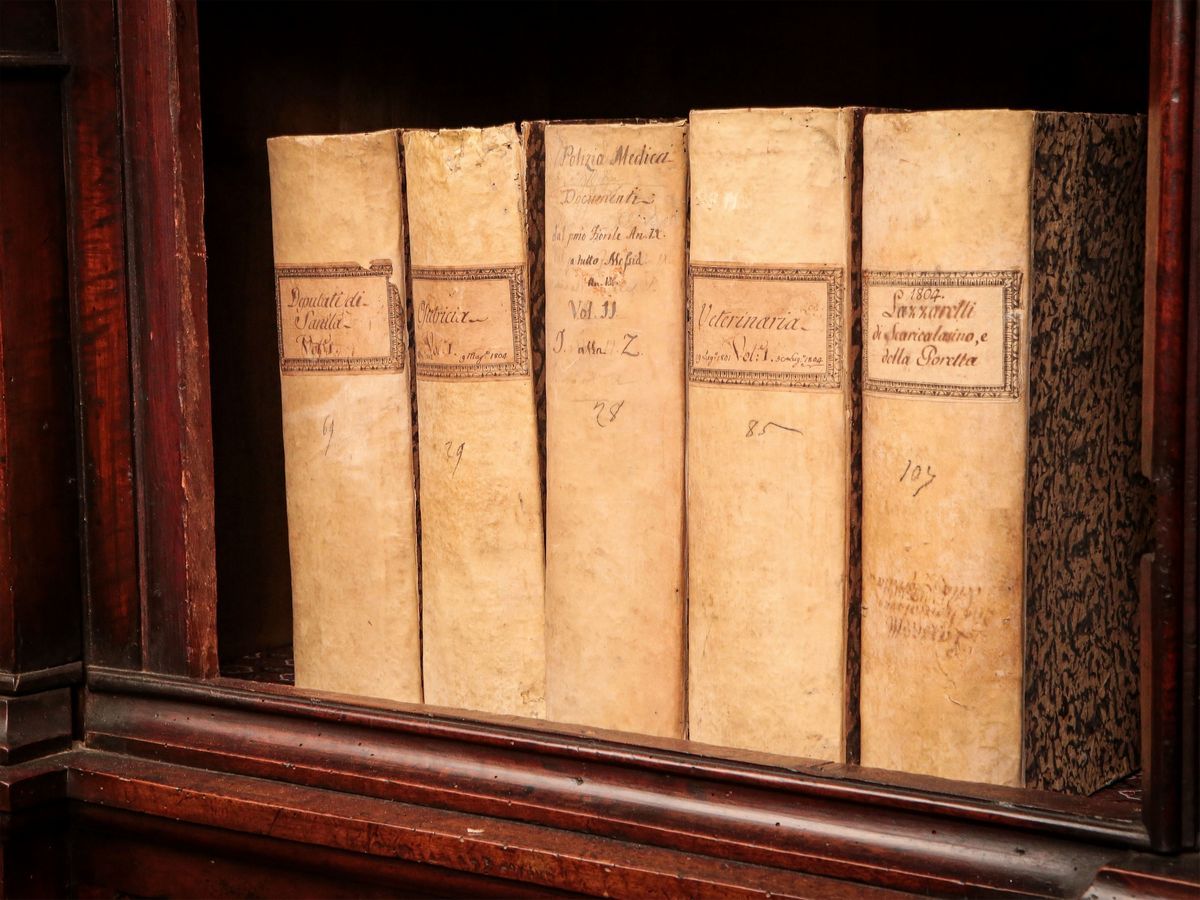 Deputati di
Sanità
Vol. 1.
69
Ostetricia
Vol. 1. 9 Magº. 1804
29
Polizia Medica
Documenti
dal pmo Fiorile An. IX.
a tutto Messid.
An. 12.
Vol. II
I. alla Z
28
Veterinaria
Vol: 1. 30 Lugº. 1804
85
1804.
Lazzaretti
di Scaricalasino, e
della Poretta
107